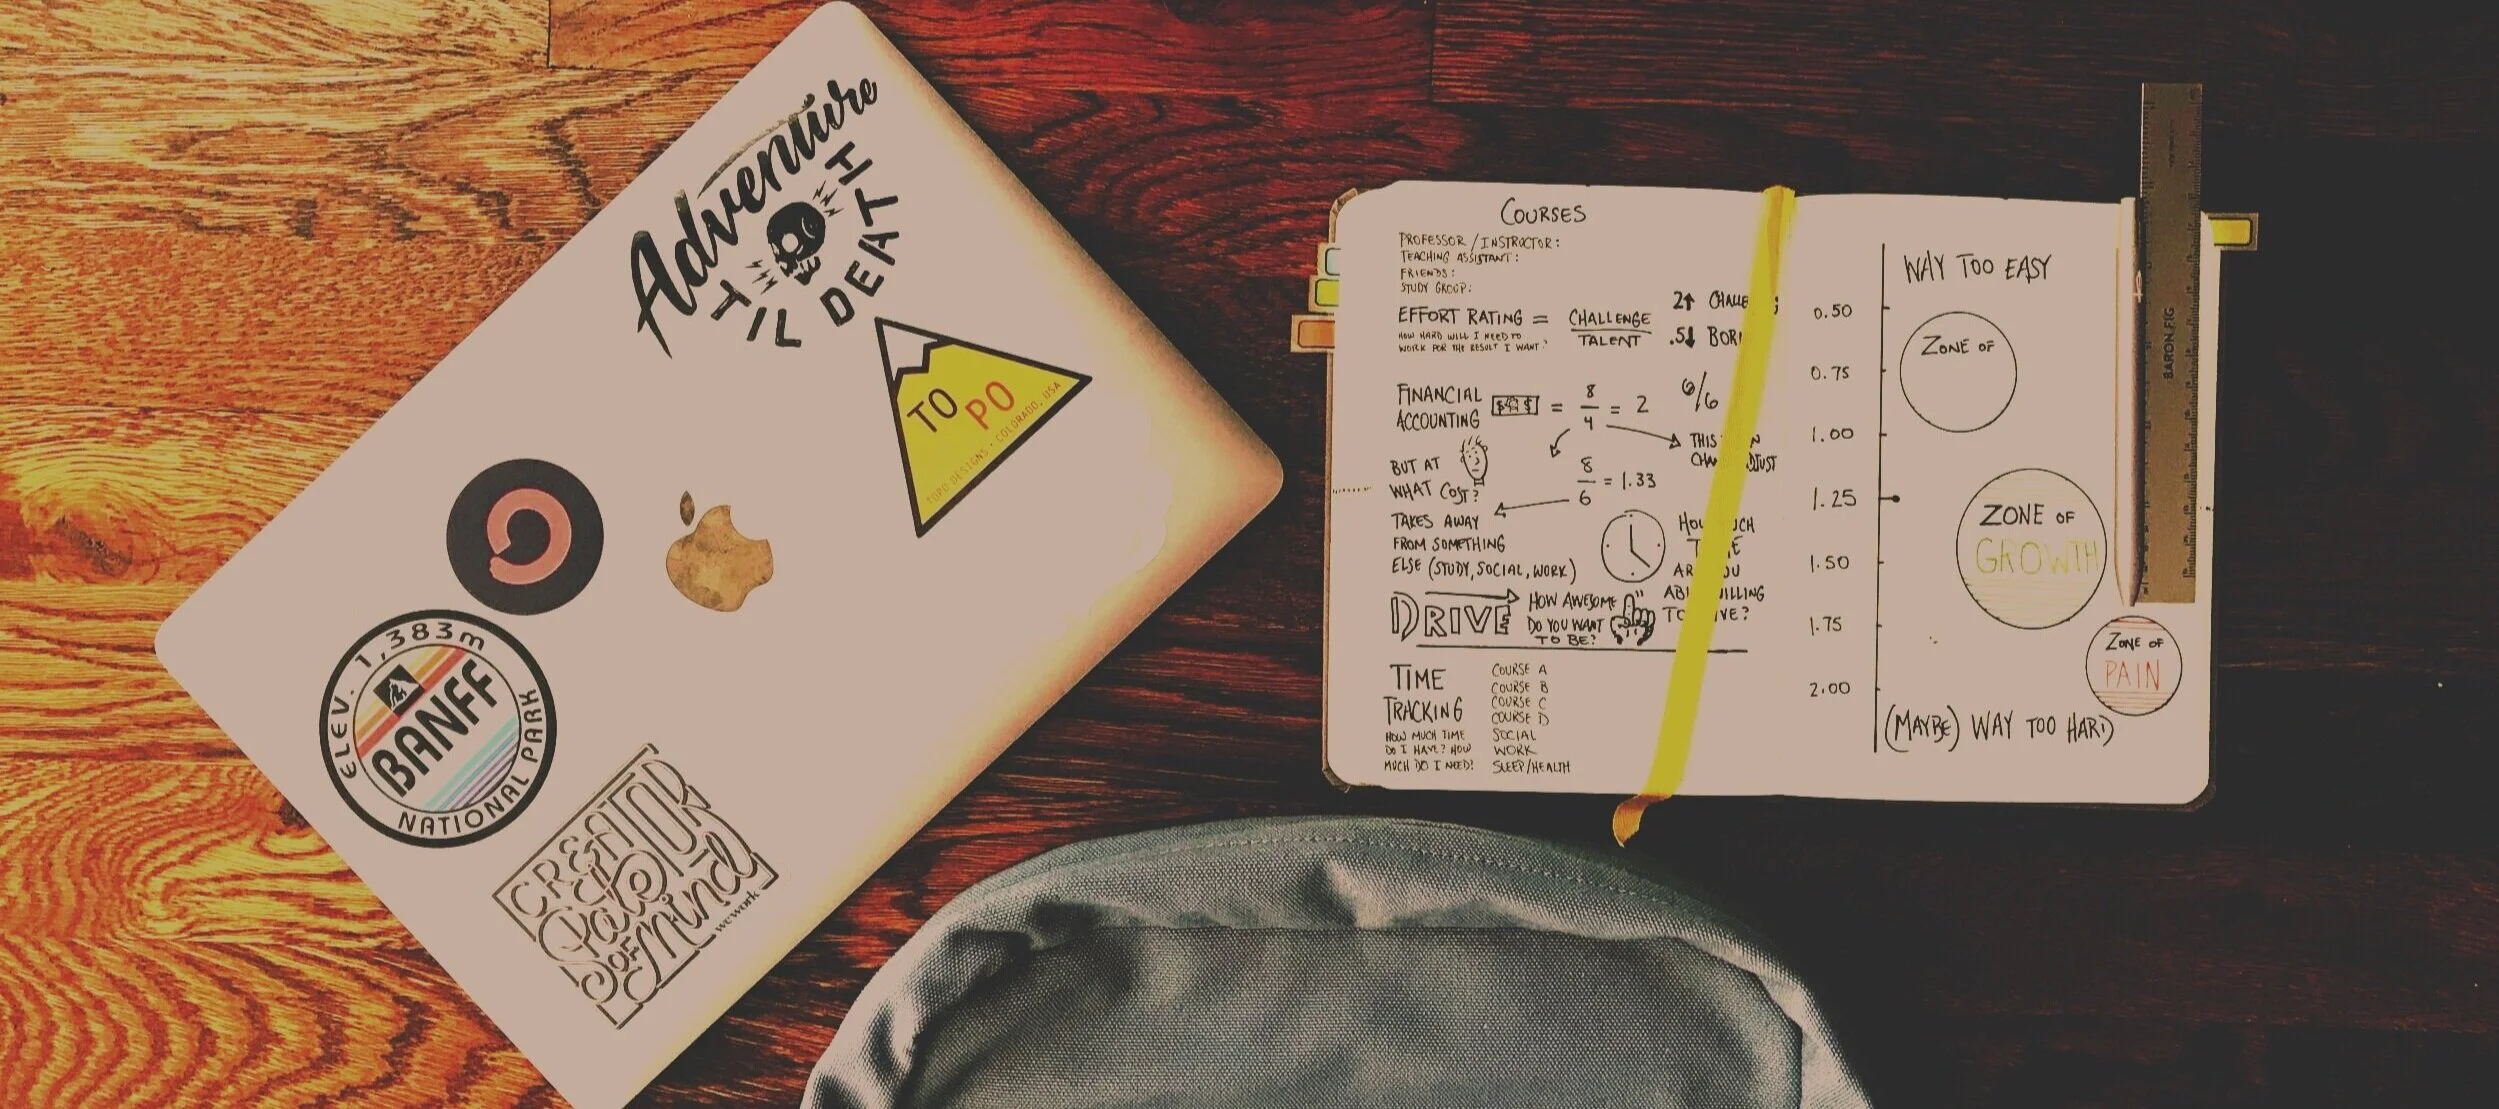 Adventure
TIL DEATH
TO PO
TOPO DESIGNS · COLORADO, USA
ELEV. 1,383m
BANFF
NATIONAL PARK
CREATOR
State
OF
Mind
wework
COURSES
PROFESSOR / INSTRUCTOR:
TEACHING ASSISTANT:
FRIENDS:
STUDY GROUP:
EFFORT RATING = CHALLENGE
TALENT
HOW HARD WILL I NEED TO
WORK FOR THE RESULT I WANT?
2↑
.5↓
FINANCIAL
ACCOUNTING
$ $ = 8
4 = 2
6/6
THIS
BUT AT
WHAT COST?
8
6 = 1.33
TAKES AWAY
FROM SOMETHING
ELSE (STUDY, SOCIAL, WORK)
DRIVE
HOW AWESOME
DO YOU WANT
TO BE?
TIME
TRACKING
HOW MUCH TIME
DO I HAVE? HOW
MUCH DO I NEED?
COURSE A
COURSE B
COURSE C
COURSE D
SOCIAL
WORK
SLEEP/HEALTH
WAY TOO EASY
0.50
0.75
1.00
1.25
1.50
1.75
2.00
ZONE OF
ZONE OF
GROWTH
ZONE OF
PAIN
(MAYBE) WAY TOO HARD
BARON FIG